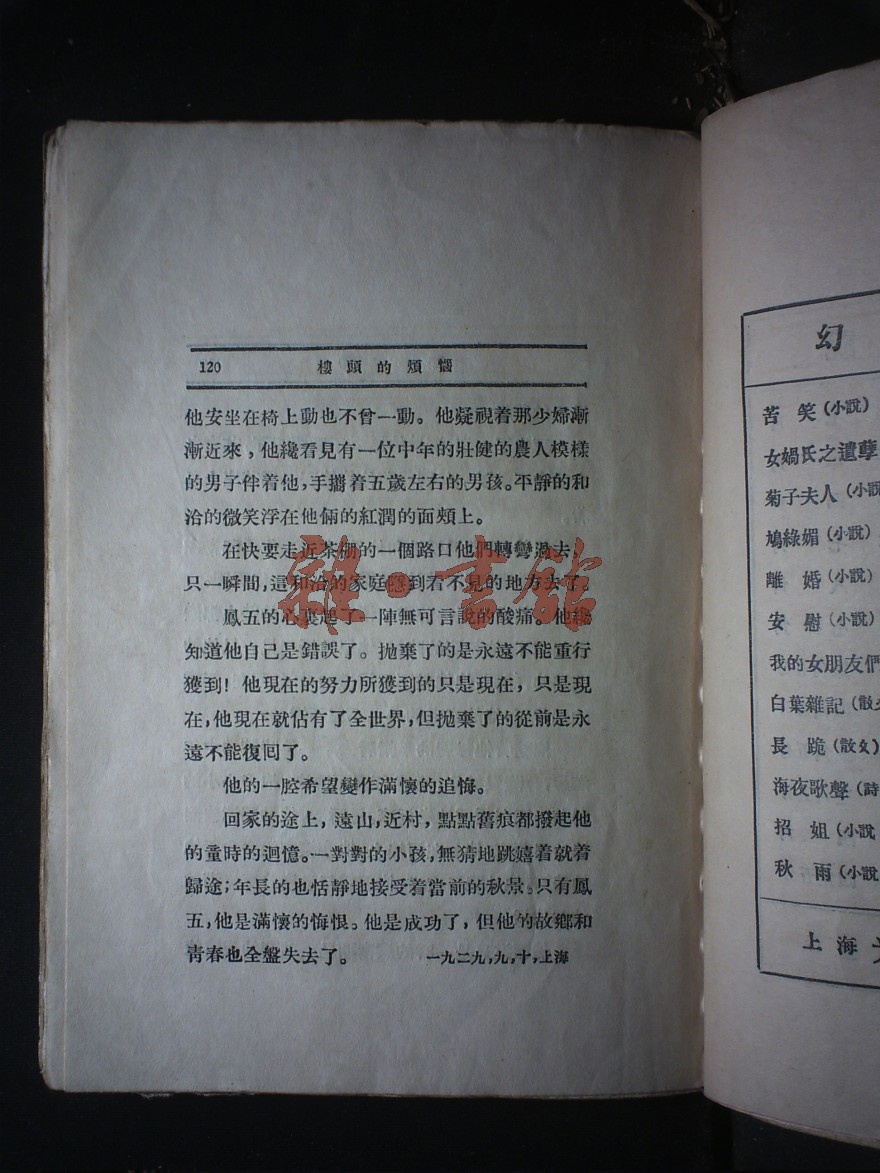 120 樓頭的煩惱
他安坐在椅上動也不曾一動。他凝視着那少婦漸
漸近來，他纔看見有一位中年的壯健的農人模樣
的男子伴着他，手攜着五歲左右的男孩。平靜的和
洽的微笑浮在他倆的紅潤的面頰上。
在快要走近茶棚的一個路口他們轉彎過去，
只一瞬間，這和洽的家庭隱到看不見的地方去了。
鳳五的心裏起了一陣無可言說的酸痛。他纔
知道他自己是錯誤了。拋棄了的是永遠不能重行
獲到！他現在的努力所獲到的只是現在，只是現
在，他現在就佔有了全世界，但拋棄了的從前是永
遠不能復回了。
他的一腔希望變作滿懷的追悔。
回家的途上，遠山，近村，點點舊痕都撥起他
的童時的迴憶。一對對的小孩，無猜地跳嬉着就着
歸途；年長的也恬靜地接受着當前的秋景。只有鳳
五，他是滿懷的悔恨。他是成功了，但他的故鄉和
青春也全盤失去了。 一九二九，九，十，上海
雜·書館
幻
苦笑（小說）
女媧氏之遺孽
菊子夫人（小說
鳩綠媚（小說）
離婚（小說）
安慰（小說）
我的女朋友們
白葉雜記（散文
長跪（散文）
海夜歌聲（詩
招姐（小說
秋雨（小說
上海